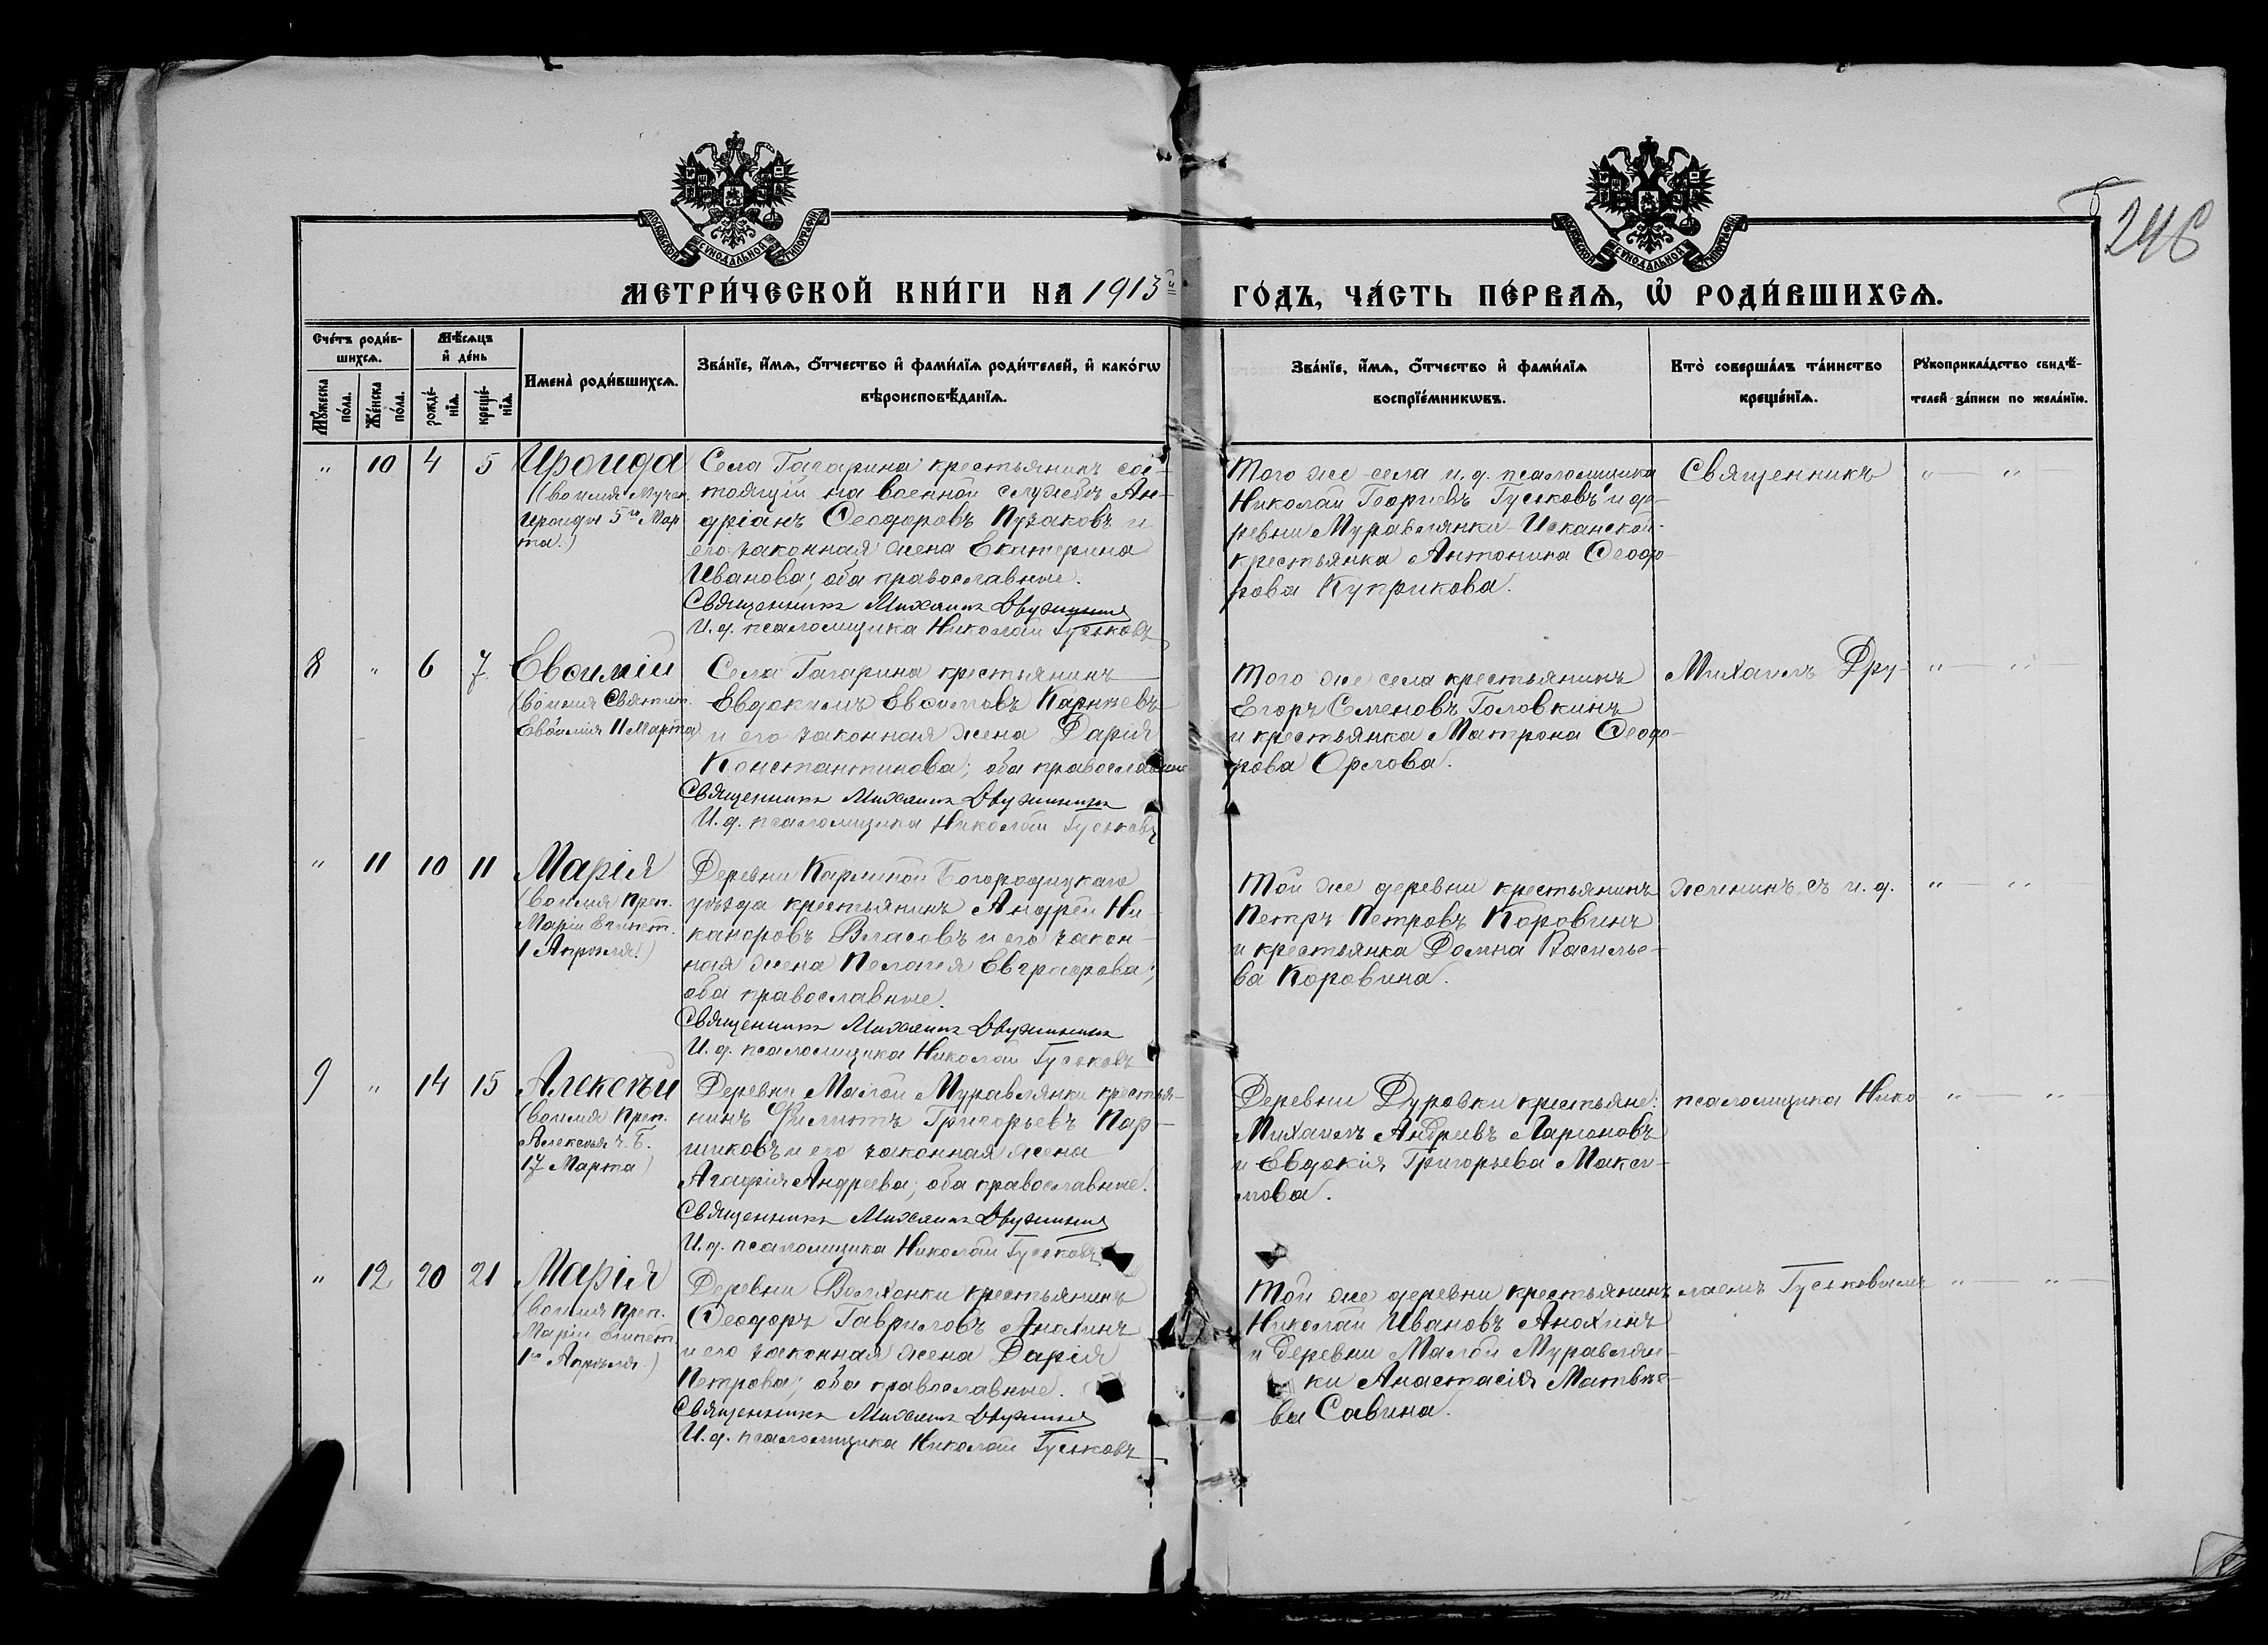 5
246
МОСКОВСКОЙ СѴНОДАЛЬНОЙ ТИПОГРАФІИ
МОСКОВСКОЙ СѴНОДАЛЬНОЙ ТИПОГРАФІИ
МЕТРИ́ЧЕСКОЙ КНИ́ГИ НА 1913й
ГО́ДЪ, ЧА́СТЬ ПЕ́РВАѦ, Ѡ҆ РОДИ́ВШИХСѦ.
Сче́тъ роди́в-
шихсѧ.
Мѣ́сѧцъ
и҆ де́нь
Мꙋ́жеска
по́ла.
Же́нска
по́ла.
рожде́-
нїѧ.
креще́-
нїѧ.
И҆мена̀ роди́вшихсѧ.
Зва́нїе, и҆́мѧ, ѻ҆́тчество и҆ фами́лїѧ роди́телей, и҆ како́гѡ
вѣроисповѣ́данїѧ.
Зва́нїе, и҆́мѧ, ѻ҆́тчество и҆ фами́лїѧ
воспрїе́мникѡвъ.
Кто̀ соверша́лъ та́инство
креще́нїѧ.
Рꙋкоприкла́дство свидѣ́-
телей за́писи по жела́нїю.
" 10 4 5 Ироида
(во имя Мучен.
Ироиды 5го Мар
та.)
Села Гагарина крестьянинъ сос-
тоящій на военной службѣ Ан-
дріанъ Ѳеодоровъ Пузаковъ и
его законная жена Екатерина
Иванова; оба православные.
Священникъ Михаилъ Дружининъ
И. д. псаломщика Николай Гуськовъ
Того же села и. д. псаломщика
Николай Георгіевъ Гуськовъ и де-
ревни Муравлянки-Исканской
крестьянка Антонина Ѳеодо-
рова Куприкова.
Священникъ
" — "
8 " 6 7 Евѳимій
(во имя Святит.
Евѳимія 11 Марта)
Села Гагарина крестьянинъ
Евдокимъ Евѳимовъ Карнѣевъ
и его законная жена Дарія
Константинова; оба православные
Священникъ Михаилъ Дружининъ
И. д. псаломщика Николай Гуськовъ
Того же села крестьянинъ
Егоръ Семеновъ Головкинъ
и крестьянка Матрона Ѳеодо-
рова Орлова.
Михаилъ Дру-
" — " —
" 11 10 11 Марія
(во имя Преп.
Маріи Египет.
1 Апрѣля.)
Деревни Кармной Богородицкаго
уѣзда крестьянинъ Андрей Ни-
каноровъ Власовъ и его закон-
ная жена Пелагея Евграфова;
оба православные.
Священникъ Михаилъ Дружининъ
И. д. псаломщика Николай Гуськовъ
Той же деревни крестьянинъ
Петръ Петровъ Коровинъ
и крестьянка Домна Василье-
ва Коровина.
жининъ съ и. д.
" — "
9 " 14 15 Алексѣй
(во имя Преп.
Алексѣя Ч. Б.
17 Марта)
Деревни Малой Муравлянки крестья-
нинъ Филиппъ Григорьевъ Пар-
шиковъ и его законная жена
Агафія Андреева; оба православные.
Священникъ Михаилъ Дружининъ
И. д. псаломщика Николай Гуськовъ
Деревни Дуровки крестьяне:
Михаилъ Андреевъ Ларіоновъ
и Евдокія Григорьева Макси-
мова.
псаломщика Нико
" — "
" 12 20 21 Марія
(во имя Преп.
Маріи Египет.
1го Апрѣля.)
Деревни Волхонки крестьянинъ
Ѳеодоръ Гавриловъ Анохинъ
и его законная жена Дарія
Петрова; оба православные.
Священникъ Михаилъ Дружининъ
И. д. псаломщика Николай Гуськовъ
Той же деревни крестьянинъ
Николай Ивановъ Анохинъ
и деревни Малой Муравлян-
ки Анастасія Матвѣе-
ва Савина.
лаемъ Гуськовымъ
" — " —